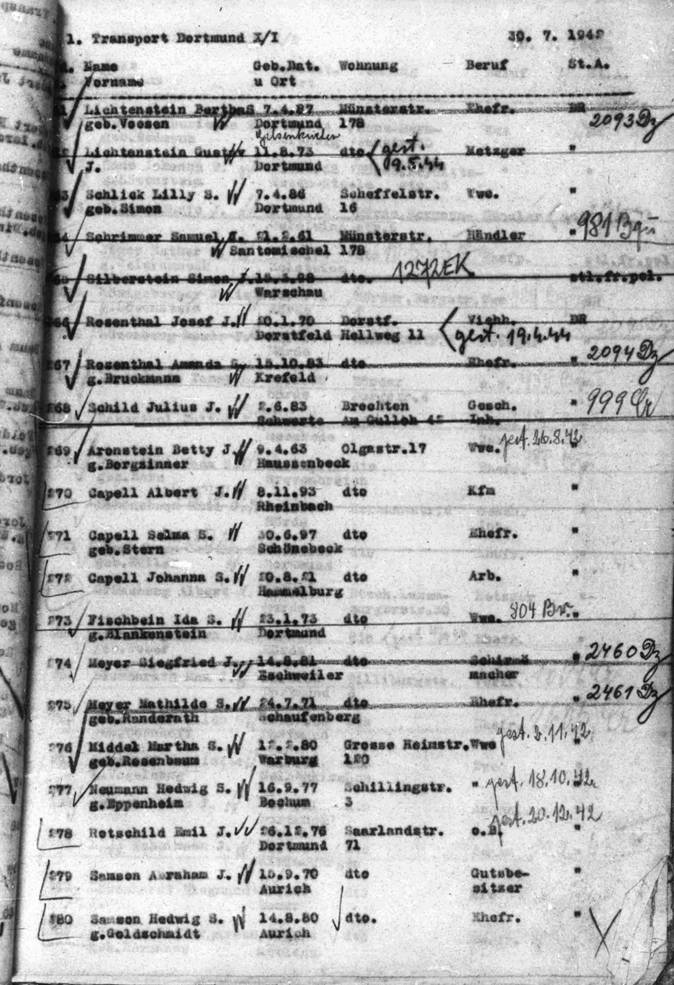 1. Transport Dortmund X/I 30. 7. 1942
Name Geb.Dat. Wohnung Beruf St.A.
Vorname u Ort
Lichtenstein Bertha S 7.4.97 Münsterstr. Ehefr. DR
geb.Voosen Dortmund 178 2093 Dz
Gelsenkirchen
Lichtenstein Gustav 11.8.73 dto gest. Metzger "
J. Dortmund 19.5.44
Schlick Lilly S. 7.4.86 Scheffelstr. Wwe. "
geb.Simon Dortmund 16
Schrimmer Samuel 21.2.61 Münsterstr. Händler " 981
Santomischel 178
Silberstein Simon J. dto. 1272 EK stl.fr.pol.
Warschau
266 Rosenthal Josef J. 20.1.70 Dorstf. Viehh. DR
Dorstfeld Hellweg 11 gest. 19.4.44
267 Rosenthal Amanda S. 15.10.83 dto Ehefr. " 2094 Dz
g.Bruckmann Krefeld
268 Schild Julius J. 2.6.83 Brechten Gesch. " 999
Schwerte Inh.
269 Aronstein Betty J. 9.4.63 Olgastr.17 Wwe. gest. 26.8.42 "
g.Bergsinner Haussenbeck
270 Capell Albert J. 8.11.93 dto Kfm "
Rheinbach
271 Capell Selma S. 30.6.97 dto Ehefr. "
geb.Stern Schönebeck
272 Capell Johanna S. 20.8.21 dto Arb. "
Hammelburg
273 Fischbein Ida S. 23.1.73 dto Wwe. 804 "
g.Blankenstein Dortmund
274 Meyer Siegfried J. 14.8.81 dto Schirm "2460 Dz
Eschweiler macher
275 Meyer Mathilde S. 24.7.71 dto Ehefr. " 2461 Dz
geb.Randerath Schaufenberg
276 Middel Martha S. 12.2.80 Grosse Heimstr. Wwe gest. 2.11.42
geb.Rosenbaum Warburg 120
277 Neumann Hedwig S. 16.9.77 Schillingstr. " gest. 18.10.42
g.Eppenheim Bochum 3
278 Rotschild Emil J. 26.12.76 Saarlandstr. o.B. gest. 20.12.42
Dortmund 71
279 Samson Abraham J. 15.9.70 dto Gutsbe- "
Aurich sitzer
280 Samson Hedwig S. 14.8.80 dto. Ehefr. "
g.Goldschmidt Aurich